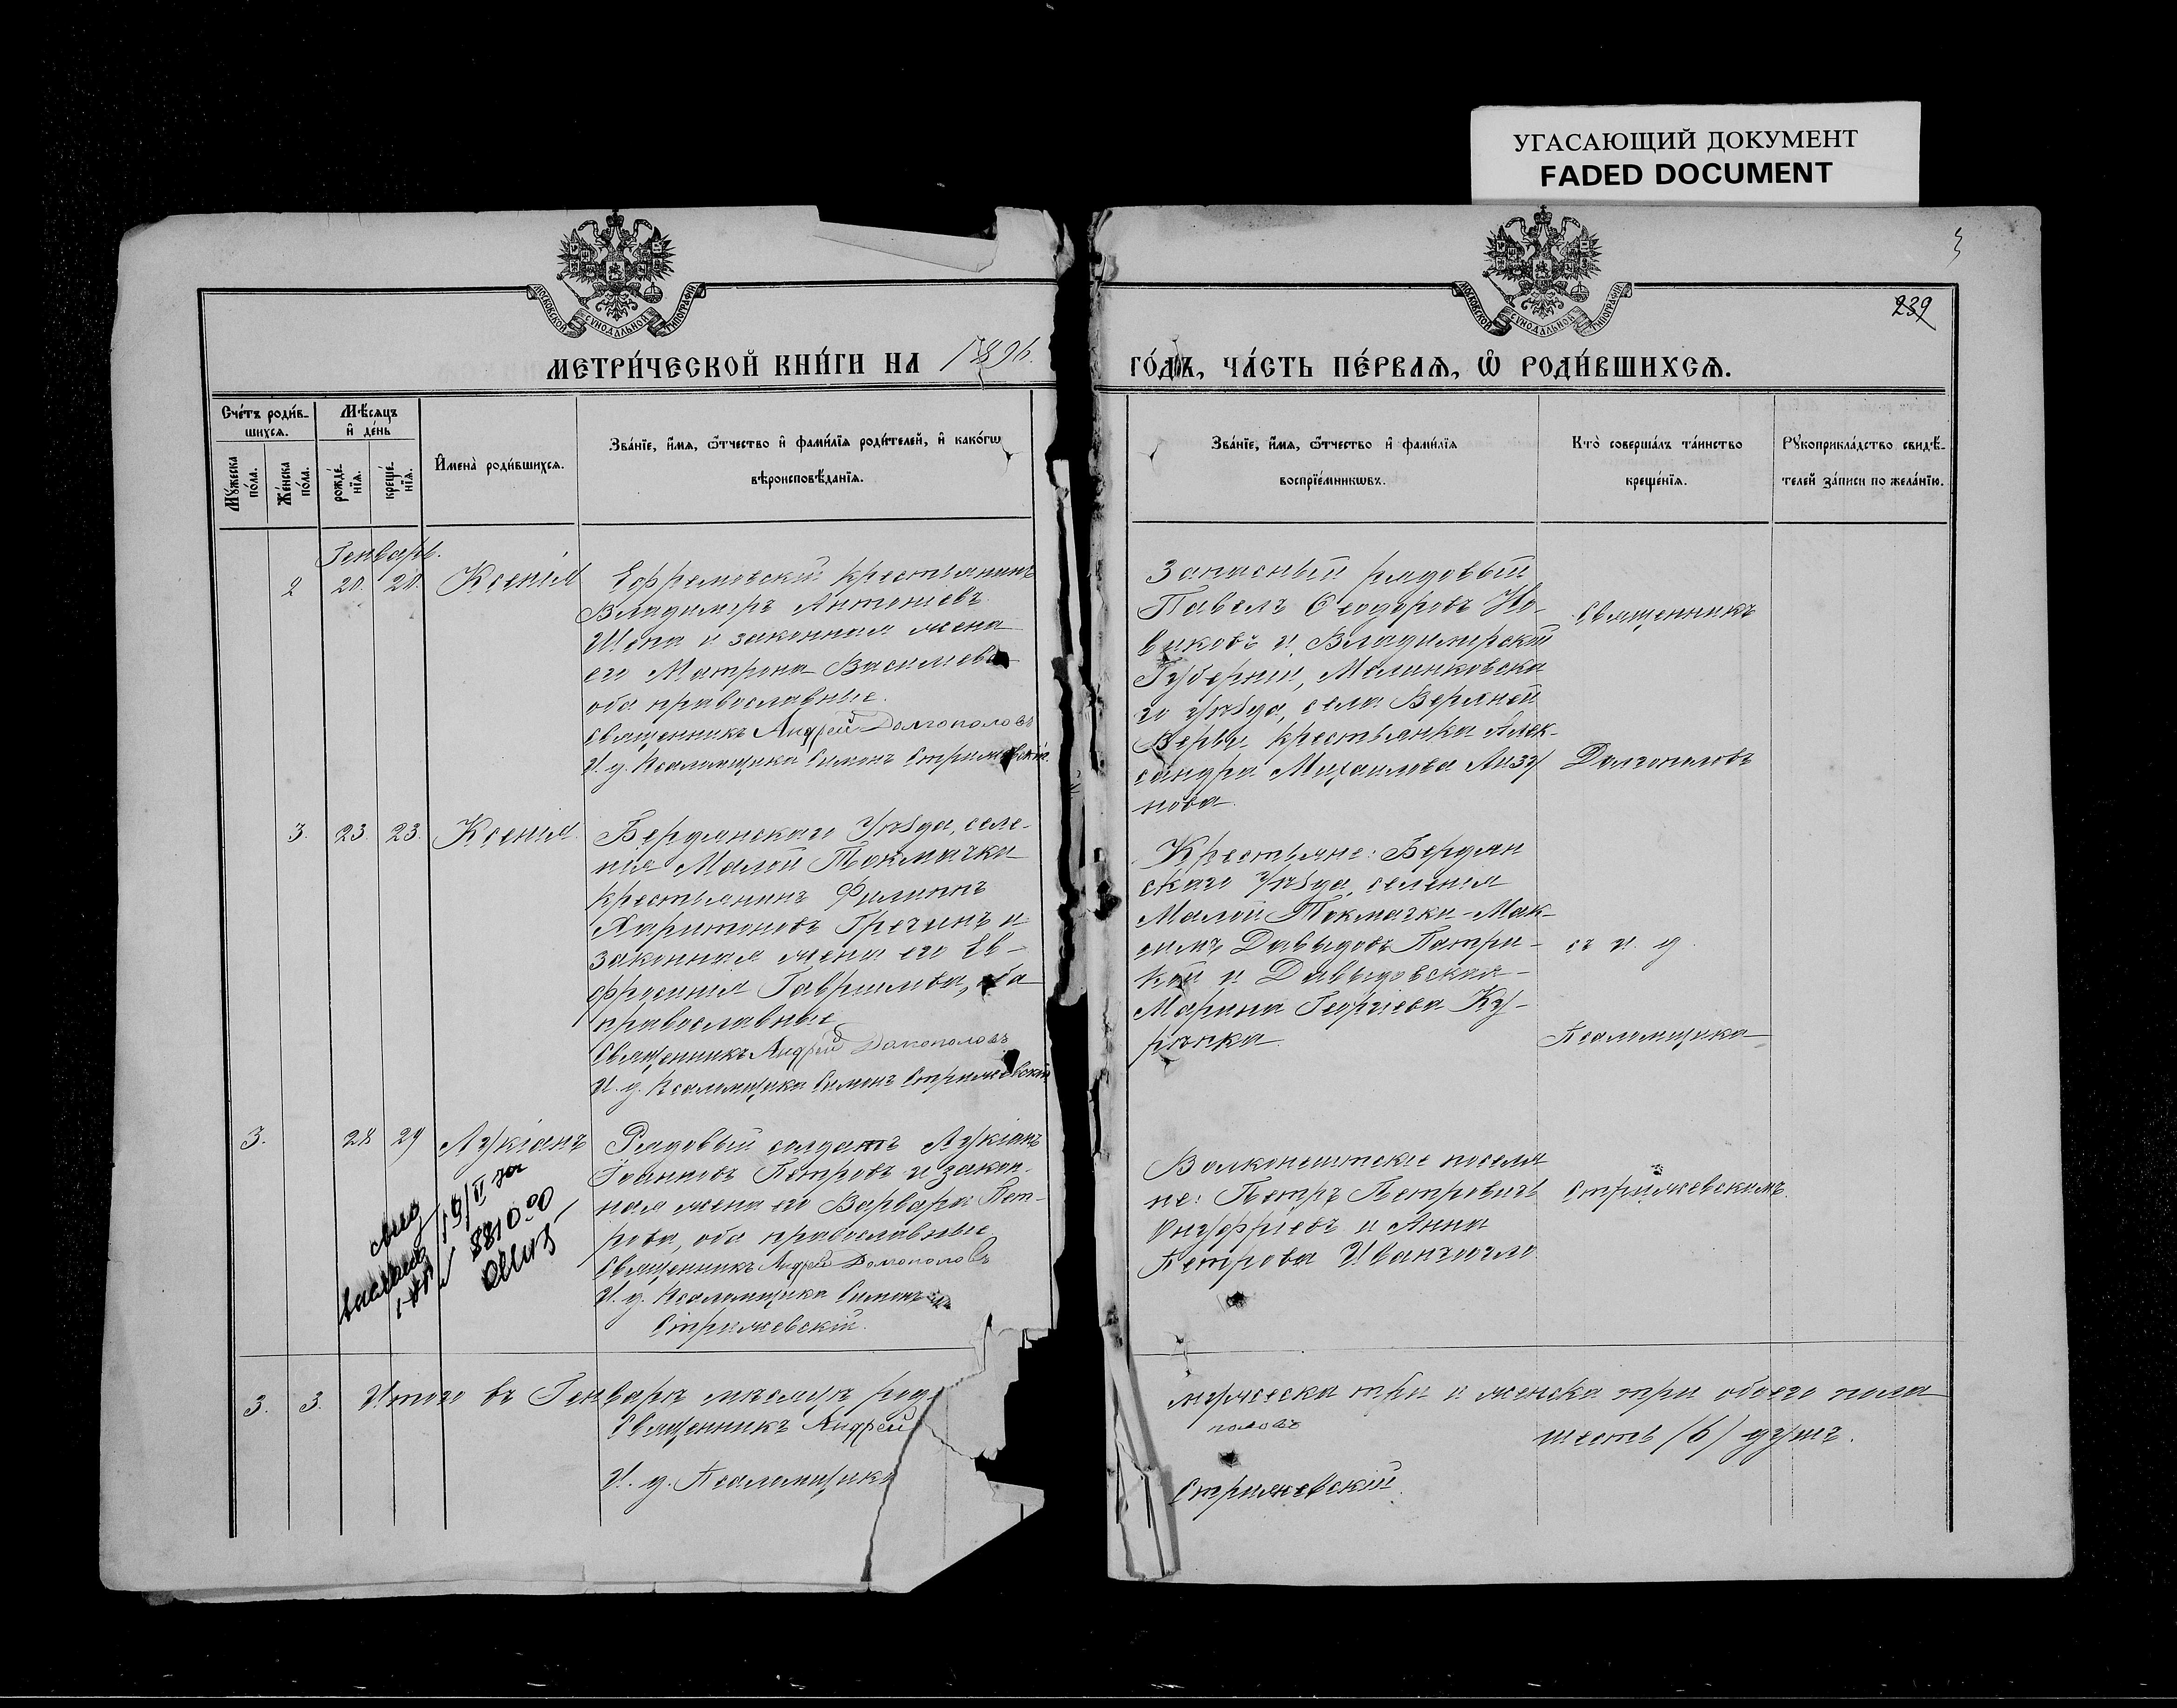 УГАСАЮЩИЙ ДОКУМЕНТ
FADED DOCUMENT
3
239
МОСКОВСКОЙ СѴНОДАЛЬНОЙ ТИПОГРАФІИ
МОСКОВСКОЙ СѴНОДАЛЬНОЙ ТИПОГРАФІИ
МЕТРИ́ЧЕСКОЙ КНИ́ГИ НА 1896.
ГО́ДЪ, ЧА́СТЬ ПЕ́РВАЯ, Ѡ҆ РОДИ́ВШИХСЯ.
Сче́тъ роди́в-
шихся.
Мѣ́сяцъ
и҆ де́нь
Му́жеска по́ла.
Же́нска по́ла.
рожде́нїя.
креще́нїя.
И҆мена̀ роди́вшихся.
Зва́нїе, и҆́мя, ѻ҆́тчество и҆ фами́лїя роди́телей, и҆ како́гѡ
вѣроисповѣ́данїя.
Зва́нїе, и҆́мя, ѻ҆́тчество и҆ фами́лїя
воспрїе́мникѡвъ.
Кто̀ соверша́лъ та́инство
креще́нїя.
Рꙋкоприкла́дство свидѣ́-
телей за́писи по жела́нїю.
Генварь.
2 20. 20. Ксенія
Ефремовскій крестьянинъ
Владимеръ Антоніевъ
и законная жена
его Матрона Василіева
оба православные.
Священникъ Андрей Долгополовъ
И. д. Псаломщика Симонъ Стрижевскій
Запасный рядовый
Павелъ Ѳеодоровъ Но-
виковъ и Владимірской
Губерніи, Меленковска
го уѣзда, села Верхней
Верьи крестьянка Алек-
сандра Михаилова
нова.
Священникъ
Долгополовъ
3. 23. 23. Ксенія.
Бердянскаго Уѣзда, селе-
нія Малой Токмачки
крестьянинъ Филиппъ
Харитоновъ Гречинъ и
законная жена его Ев-
фросинія Гавріилова, оба
православные
Священникъ Андрей Долгополовъ
И. д. Псаломщика Симонъ Стрижевскій
Крестьяне: Бердян
скаго Уѣзда, селенія
Малой Токмачки - Мак-
симъ Давыдовъ Патри-
кей и Давыдовская -
Марина Георгіева Ку-
рочка.
съ и. д.
Псаломщика
3. 28 29 Лукіанъ
Рядовый солдатъ Лукіанъ
Іоанновъ Петровъ и закон-
ная жена его Варвара Пет-
рова, оба православные
Священникъ Андрей Долгополовъ
И. д. Псаломщика Симонъ
Стрижевскій.
Волконештскіе поселя
не: Петръ Петровичъ
Онуфріевъ и Анна
Петрова Иванчогло
Стрижевскимъ.
19/V
881000
3. 3. Итого въ Генварѣ мѣсяцѣ род
мужеска три и женска три обоего пола
шесть (6) душъ.
Священникъ Андрей
половъ
И. д. Псаломщика
Стрижевскій.